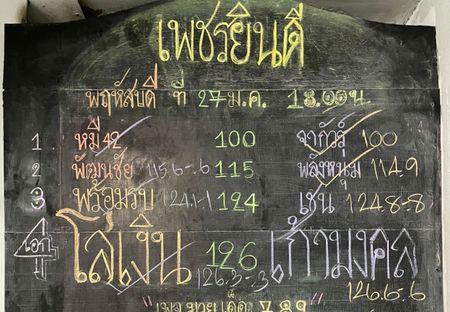 เพชรยินดี
พฤหัสบดี ที่ 27 ม.ค. 18.00 น.
1 หมี 42 100 จากัวร์ 100
2 พัฒนชัย 115.6 -.6 115 พลังหนุ่ม 114.9
3 พร้อมรบ 124.1-.1 124 เซน 124.8-.8
เอก 4 โล่เงิน 126 126.3-.3 เก้ามงคล 126.6-.6
789